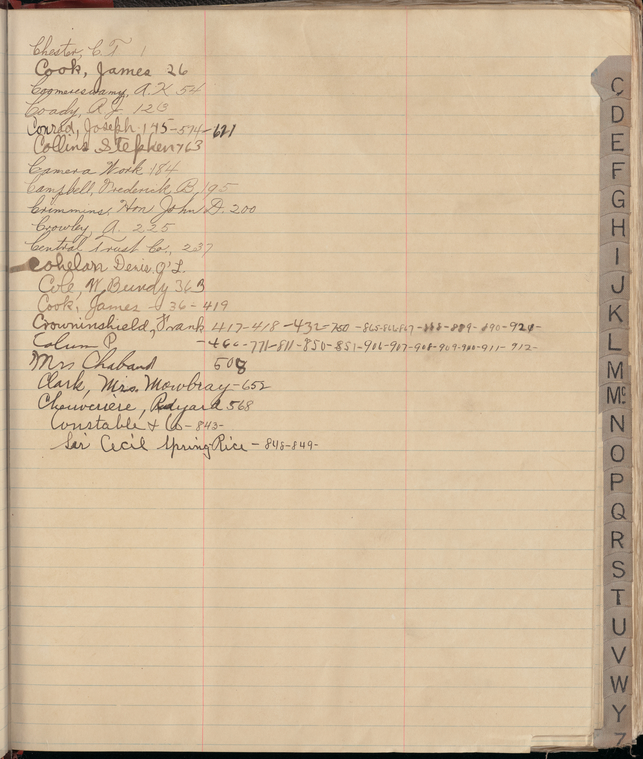 Chester, C.T 1
Cook, James 26
Coomereswamy, A.K 54
Coady, R.J. 123
Conrad, Joseph 175-574-621
Collins Stephen 763
Camera Work 184
Campbell, Frederick B, 195
Crimmins, Hon John D. 200
Crowley, A. 225
Central Trust Co., 237
Cohelan Denis O'L.
Cole, W. Bundy 363
Cook, James - 36-419
Crowninshield, Frank 417-418-432-760
Colum P -460-771-811-850-851-906-907-908-909-910-911-912-
Mrs Chaband 508
Clark, Mrs. Mowbray-652
568
Constable & Co-843-
Sir Cecil Spring Rice-848-849-
C
D
E
F
G
H
I
J
K
L
M
Mc
N
O
P
Q
R
S
T
U
V
W
Y
Z